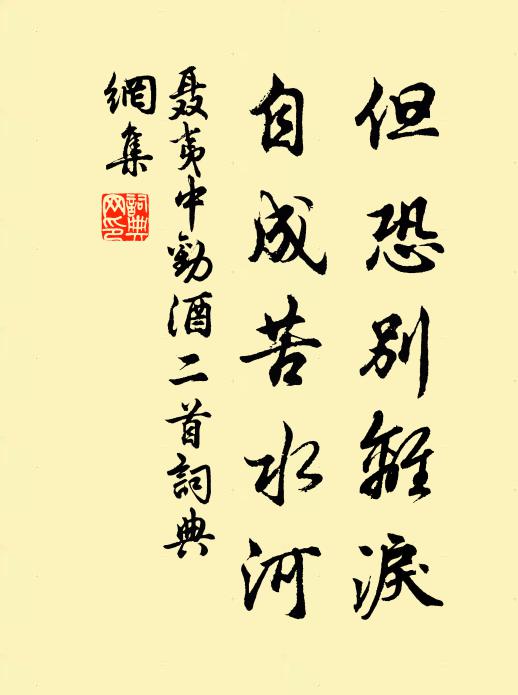 但恐別離淚
自成苦水河
聂夷中勸酒二首詞典
網集
詞典
网印